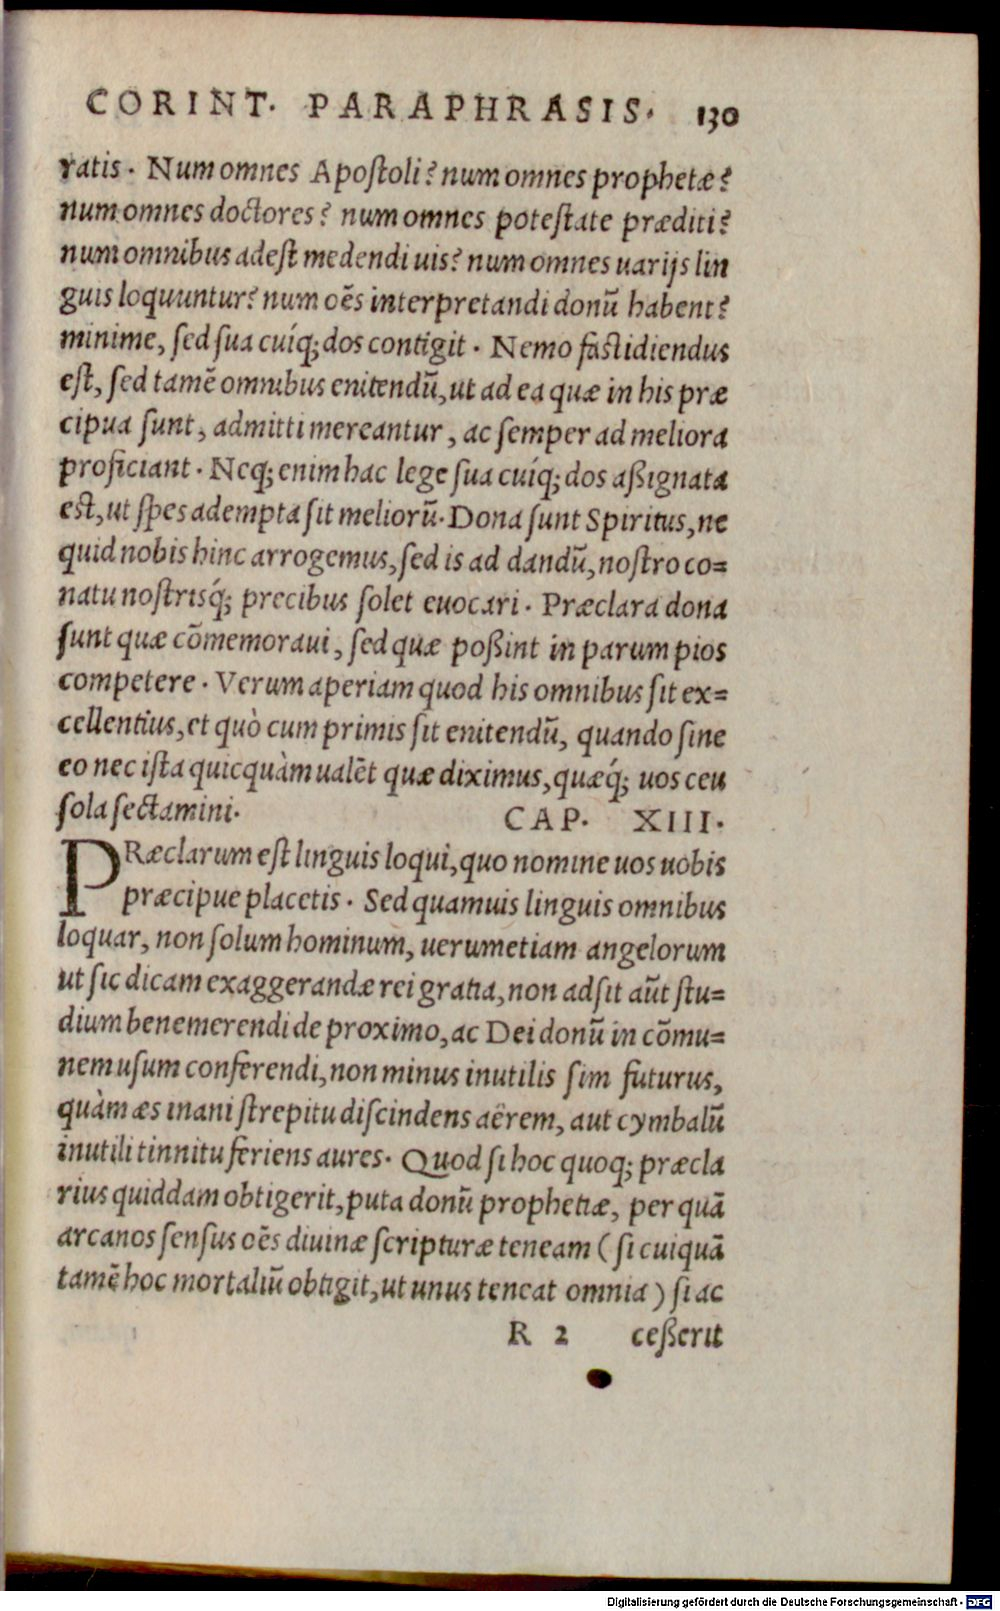 CORINT. PARAPHRASIS. 130
ratis. Num omnes Apostoli? num omnes prophetæ?
num omnes doctores? num omnes potestate præditi?
num omnibus adest medendi uis? num omnes uarijs lin
guis loquuntur? num oẽs interpretandi donũ habent?
minime, sed sua cuíq; dos contigit. Nemo fastidiendus
est, sed tamẽ omnibus enitendũ, ut ad ea quæ in his præ
cipua sunt, admitti mereantur, ac semper ad meliora
proficiant. Neq; enim hac lege sua cuíq; dos aßignata
est, ut spes adempta sit meliorũ. Dona sunt Spiritus, ne
quid nobis hinc arrogemus, sed is ad dandũ, nostro co=
natu nostrisq́; precibus solet euocari. Præclara dona
sunt quæ cõmemoraui, sed quæ poßint in parum pios
competere. Verum aperiam quod his omnibus sit ex=
cellentius, et quò cum primis sit enitendũ, quando sine
eo nec ista quicquàm ualẽt quæ diximus, quæq́; uos ceu
sola sectamini.
CAP. XIII.
PRæclarum est linguis loqui, quo nomine uos uobis
præcipue placetis. Sed quamuis linguis omnibus
loquar, non solum hominum, uerumetiam angelorum
ut sic dicam exaggerandæ rei gratia, non adsit aũt stu=
dium benemerendi de proximo, ac Dei donũ in cõmu=
nem usum conferendi, non minus inutilis sim futurus,
quàm æs inani strepitu discindens aërem, aut cymbalũ
inutili tinnitu feriens aures. Quod si hoc quoq; præcla
rius quiddam obtigerit, puta donũ prophetiæ, per quã
arcanos sensus oẽs diuinæ scripturæ teneam (si cuiquã
tamẽ hoc mortaliũ obtigit, ut unus teneat omnia) si ac
R 2 ceßerit
Digitalisierung gefördert durch die Deutsche Forschungsgemeinschaft - DFG